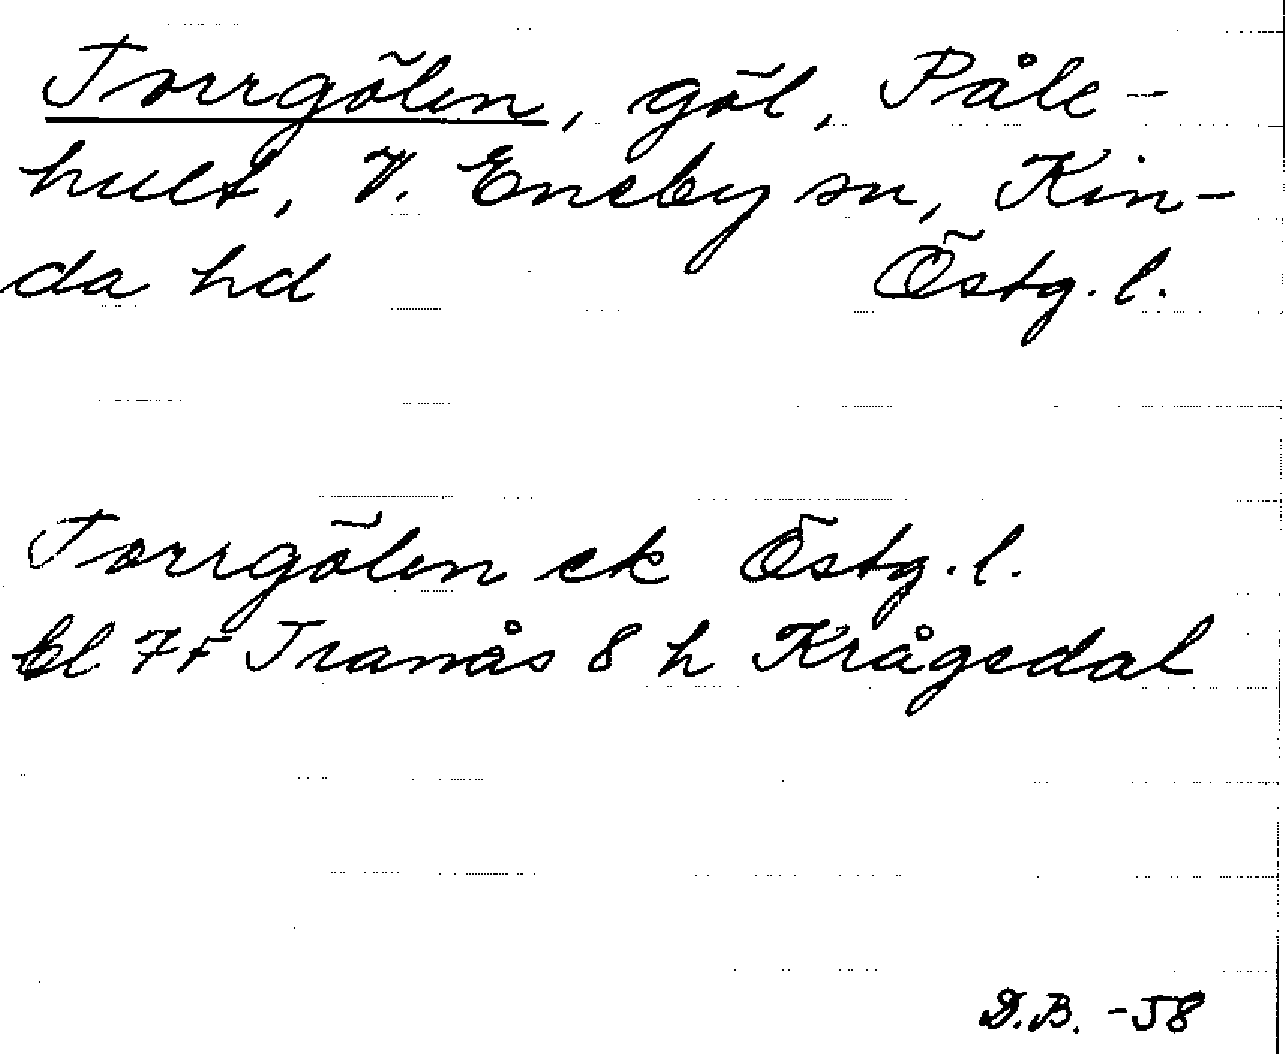 Torrgölen, göl, Påle-
hult, V. Eneby sn, Kin-
da hd Östg. l.
Torrgölen ek Östg. l.
Bl 7F Tranås 8 h Krågedal
D.B. -58